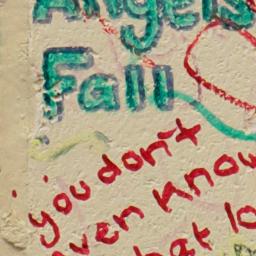 Angels
Fall
you don't
even know
what